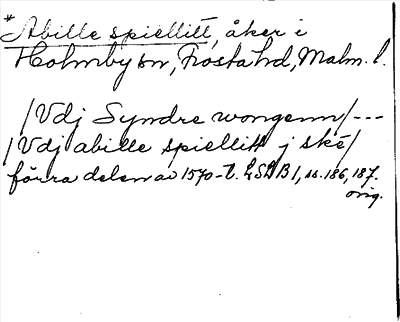 *Abille spiellitt, åker i
Holmby sn, Frosta hd, Malm. l.
/Vdj Syndre wongenn/ ---
/Vdj abille spiellitt j ske/
förra delen av 1570-t. LSDB 1, ss. 186, 187.
orig.